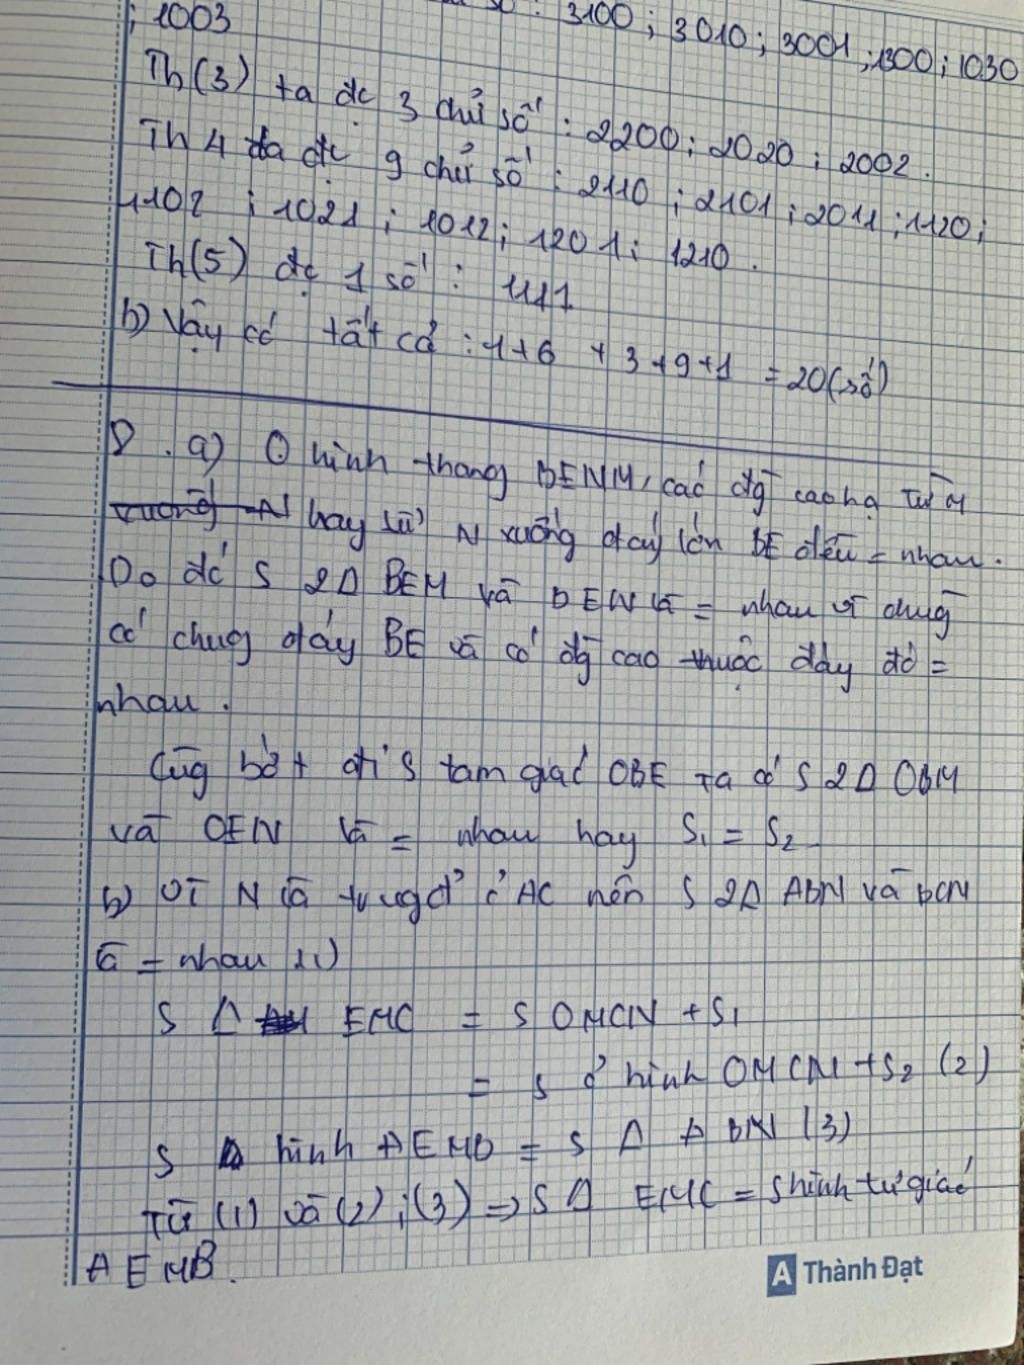 số : 3100 ; 3010 ; 3001 ; 1300 ; 1030
; 1003
Th(3) ta đc 3 chữ số : 2200 ; 2020 ; 2002.
Th 4 ta đc 9 chữ số : 2110 ; 2101 ; 2011 ; 1120 ;
1102 ; 1021 ; 1012 ; 1201 ; 1210.
Th(5) đc 1 số : 1111
b) Vậy có tất cả : 1+6 + 3+9+1 = 20(số)
8. a) Ở hình thang BENM, các đg cao hạ từ M
vuông N hay từ N xuống đáy lớn BE đều = nhau.
Do đó S 2Δ BEM và BEN là = nhau vì chúg
có chug đáy BE và có đg cao thuộc đáy đó =
nhau.
Cùg bớt đi S tam giác OBE ta có S 2Δ OBM
và OEN là = nhau hay S₁ = S₂
b) Vì N là trugđ' AC nên S 2Δ ABN và BCN
là = nhau (1)
S Δ EMC = S OMCN + S₁
= S hình OMCN + S₂ (2)
S hình AEMB = S Δ ABN (3)
Từ (1) và (2) ; (3) => S Δ EMC = S hình tứ giác
AEMB.
A Thành Đạt